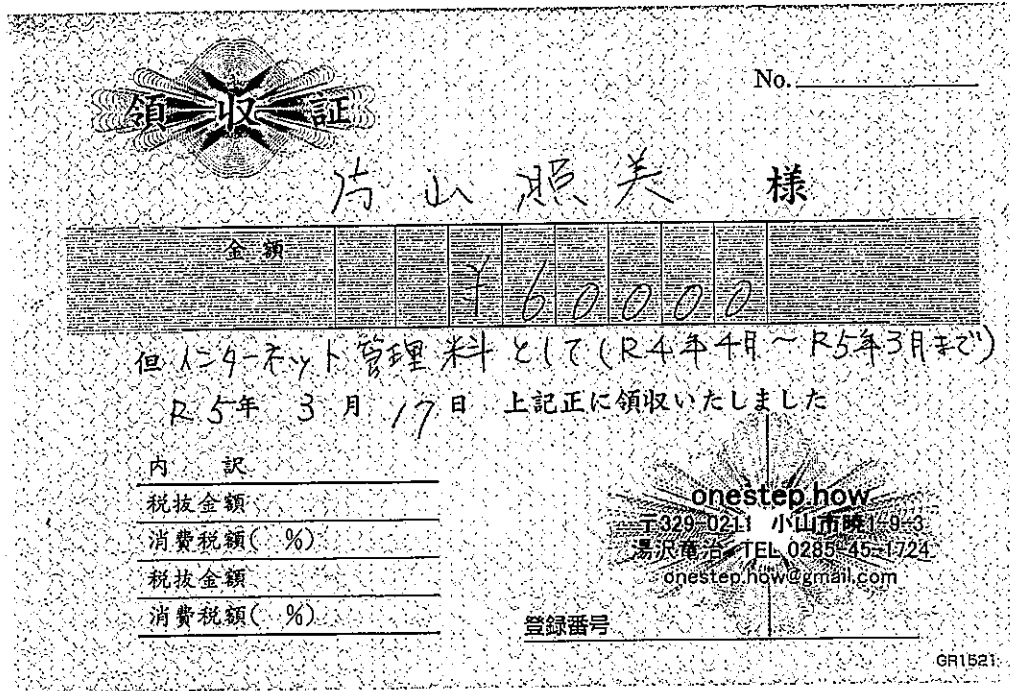 領収証
No.
片山照美 様
金額 ¥60000
但 インターネット管理料として(R4年4月~R5年3月まで)
R5年 3月 17日 上記正に領収いたしました
内 訳
税抜金額
消費税額( %)
税抜金額
消費税額( %)
onestep.how
〒329-0211 小山市暁1-9-3
湯沢竜治 TEL 0285-45-1724
onestep.how@gmail.com
登録番号
GR1521